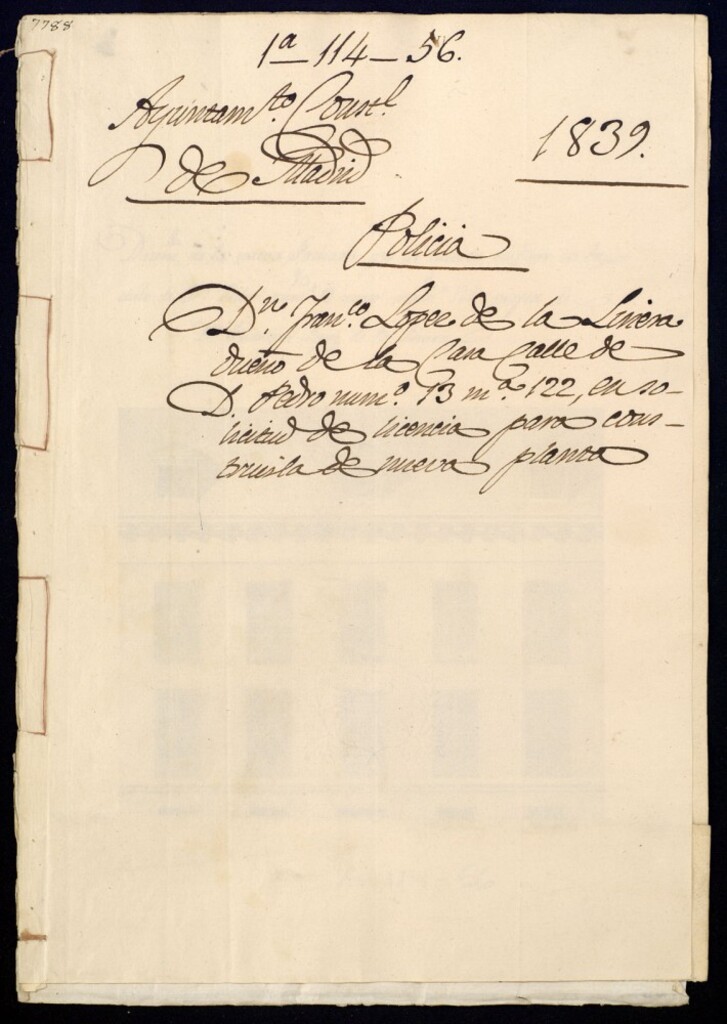 7788
1ª-114-56.
Ayuntamto. Constl.
de Madrid
1839.
Policia
Dn. Franco. Lopez de la
dueño de la Casa Calle de
D. Pedro numo. 13 mª 122, en so-
licitud de licencia para cons-
truirla de nueva planta